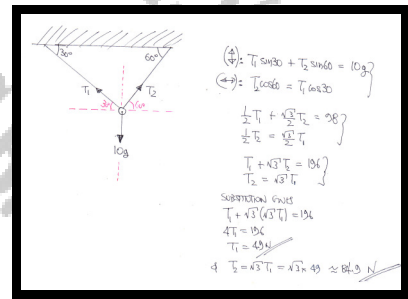 30°
60°
T₁
T₂
30°
60°
10g
(↕): T₁ sin30 + T₂ sin60 = 10g
(↔): T₂ cos60 = T₁ cos30
1/2 T₁ + √3/2 T₂ = 98
1/2 T₂ = √3/2 T₁
T₁ + √3 T₂ = 196
T₂ = √3 T₁
SUBSTITUTION GIVES
T₁ + √3(√3 T₁) = 196
4T₁ = 196
T₁ = 49 N
& T₂ = √3 T₁ = √3 × 49 ≈ 84.9 N